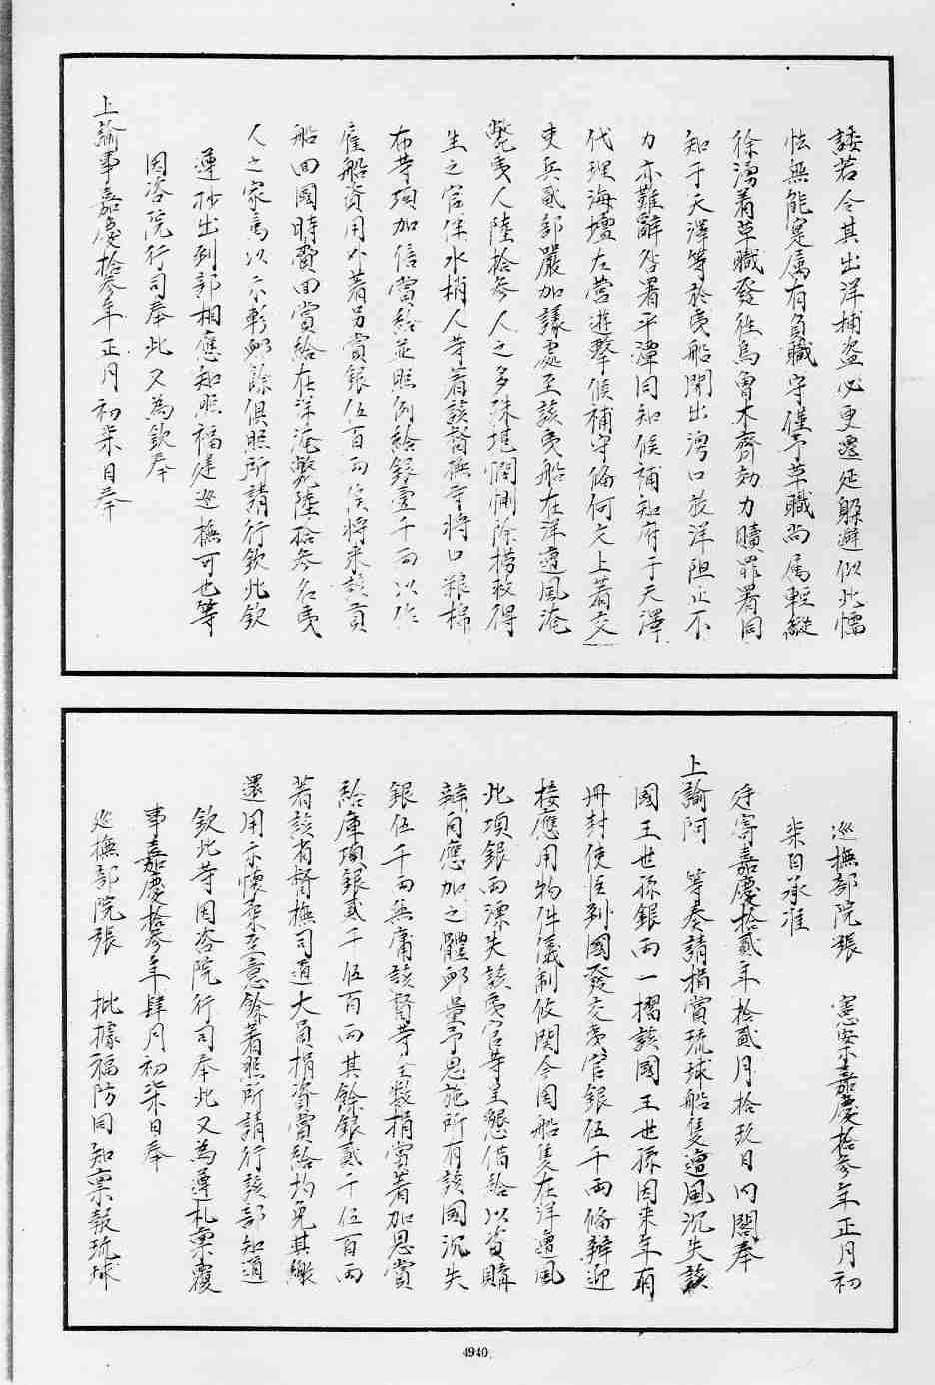 諉若令其出洋捕盜必更遷延躲避似此懦
怯無能寔属有負職守僅予草職尚属輕縱
徐湧着草職發往烏魯木齊効力贖罪署同
知于天澤等於夷船開出灣口放洋阻止不
力亦難辭咎署平潭同知候補知府于天澤
代理海壇左營遊擊候補守備何元上著交
吏兵貳部嚴加議處至該夷船在洋遭風淹
斃夷人陸拾參人之多殊堪憫惻除撈救得
生之官伴水梢人等着該督撫等將口糧棉
布等項加倍賞給並照例給銀壹千両以作
僱船資用外著另賞銀伍百両俟將來該貢
船回國時賫回賞給在洋淹斃陸拾叁名夷
人之家属以示軫卹餘俱照所請行欽此欽
遵抄出到部相應知照福建巡撫可也等
因咨院行司奉此又為欽奉
上諭事嘉慶拾叁年正月初柒日奉
巡撫部院張 憲案嘉慶拾叁年正月初
柒日承准
廷寄嘉慶拾貳年拾貳月拾玖日內閣奉
上諭阿 等奏請捐賞琉球船隻遭風沉失該
國王世孫銀両一摺該國王世孫因來年有
冊封使臣到國發交夷官銀伍千両俻辦迎
接應用物件儀制攸関今因船隻在洋遭風
此項銀両漂失該夷官等呈懇借給以資購
辦自應加之體卹量予恩施所有該國沉失
銀伍千両無庸該督等全數捐賞著加恩賞
給庫項銀貳千伍百両其餘銀貳千伍百両
著該省督撫司道大員捐資賞給均免其繳
還用示懷柔至意餘着照所請行該部知道
欽此等因咨院行司奉此又為遵札稟覆
事嘉慶拾叁年肆月初柒日奉
巡撫部院張 批據福防同知稟報琉球
4940